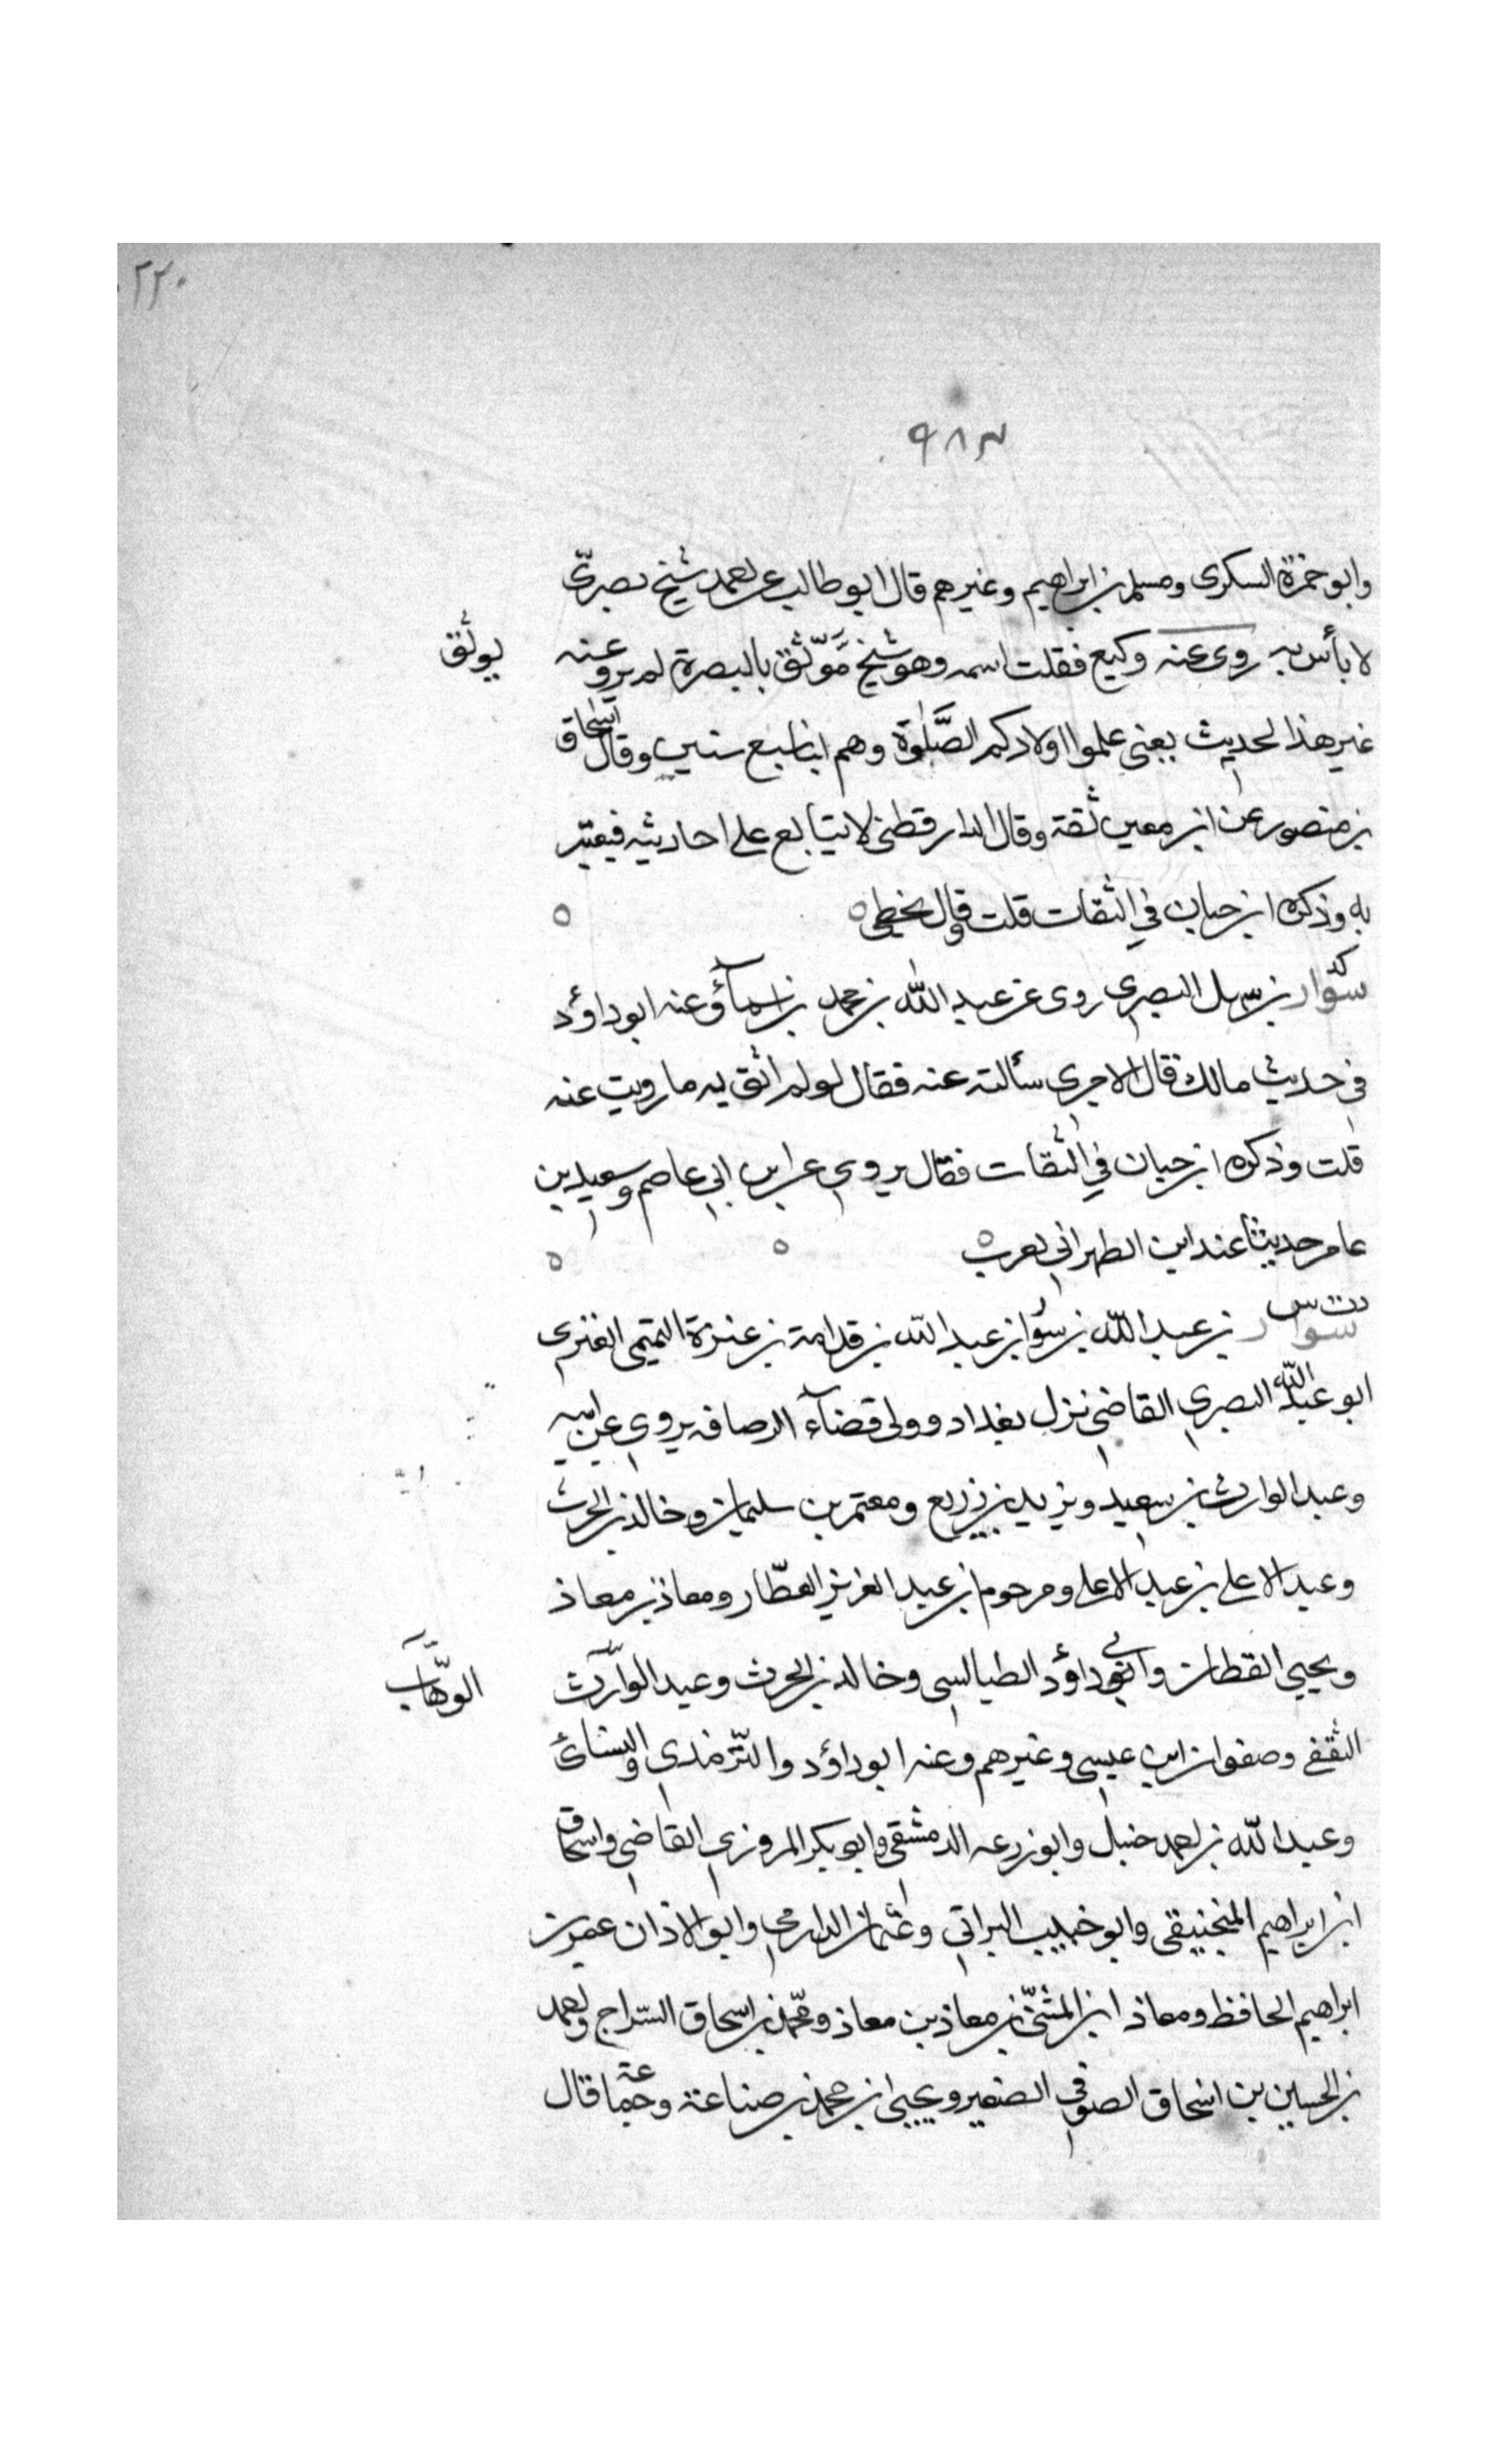 ٢٢٠
٩٨٣
وابو حمزة السكرى ومسلم بن ابراهيم وغيرهم قال ابو طالب عن احمد شيخ بصرىّ
لا بأس به روى عنه وكيع فقلت اسمه وهو شيخ مَوّثق بالبصرة لم يرو عنه
يوثق
غير هذا الحديث يعنى علموا اولادكم الصَّلوٰة وهم ابنا سبع سنين وقال اسحاق
بن منصور عن ابن معين ثقة وقال الدارقطنى لا يتابع على احاديثه فيعتبر
به وذكره ابن حبان فى الثقات قلت وقال يخطى
كد
سوّار بن سهل البصرى روى عن عبد الله بن محمد بن اسمآؤ عنه ابو داؤد
فى حديث مالك قال الاجرى سألته عنه فقال لو لم اثق به ما رويت عنه
قلت وذكره ابن حبان فى الثقات فقال يروى عن ابى عاصم وسعيد بن
عامر حديثنا عند ابن الطهرانى
دت س
سوار بن عبد الله بن سوّار بن عبد الله بن قدامة بن عنزة التميمى العنبرى
ابو عبد الله البصرى القاضى نزل بغداد وولى قضآء الرصافه يروى عن ابيه
وعبد الوارث بن سعيد ويزيد بن زريع ومعتمر بن سليمان وخالد بن الحرث
وعبد الاعلى بن عبد الاعلى ومرحوم بن عبد العزيز العطّار ومعاذ بن معاذ
ويحيى القطان وابى داؤد الطيالسى وخالد بن الحرث وعبد الوارث
الوهّاب
الثقفى وصفوان ابن عيسى وغيرهم وعنه ابو داؤد والتّرمذى والنسائى
وعبد الله بن احمد حنبل وابو زرعه الدمشقى وابو بكر المروزى القاضى واسحاق
ابن ابراهيم المنجنيقى وابو خبيب البراتى وعثمان الدارمى وابو الاذان عمر بن
ابراهيم الحافظ ومعاذ ابن المثنّى بن معاذ بن معاذ ومحمّد بن اسحاق السّراج واحمد
بن الحسين بن اسحاق الصوفى الصغير ويحيى ابن محمد بن صاعة وجماعة قال